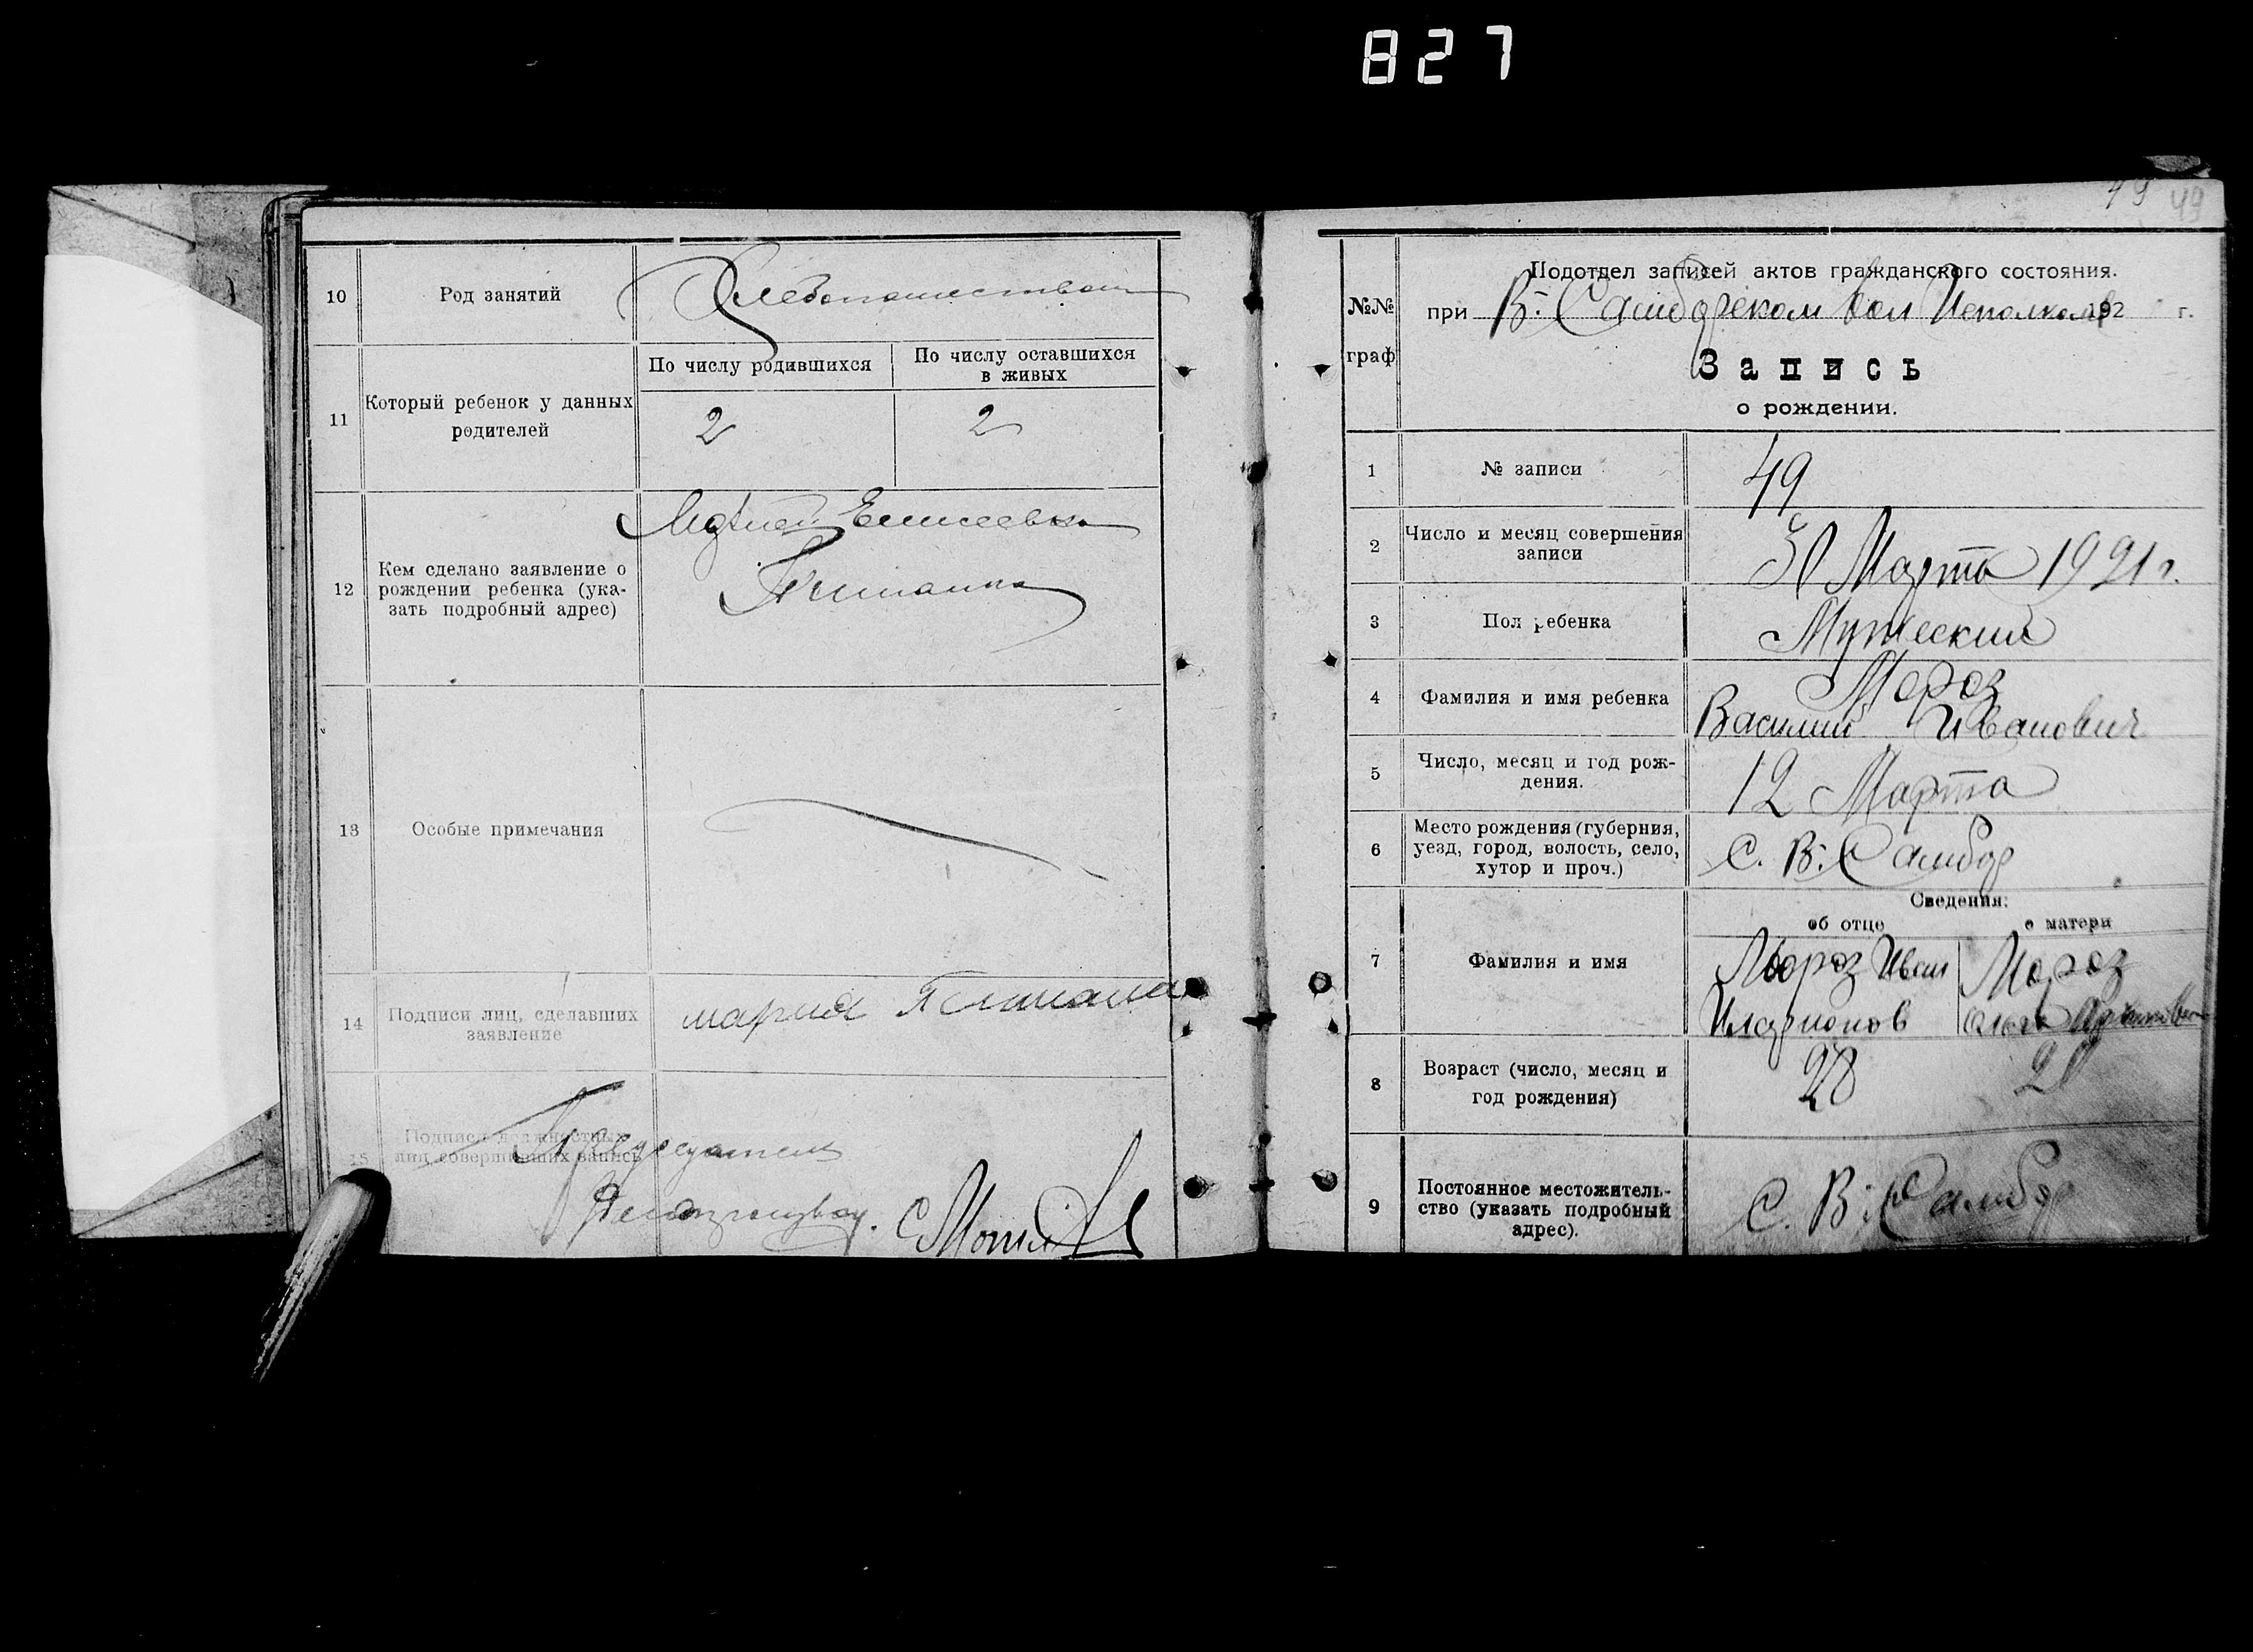 827
10
Род занятий
Хлебопашеством
11
Который ребенок у данных
родителей
По числу родившихся
По числу оставшихся
в живых
2
2
12
Кем сделано заявление о
рождении ребенка (ука-
зать подробный адрес)
Елисеевна
13
Особые примечания
14
Подписи лиц, сделавших
заявление
мария
15
Подписи должностных
лиц совершивших запись
Председатель
49 49
№№
граф
Подотдел записей актов гражданского состояния.
при В: Самборском Вол Исполкоме 192 г.
Запись
о рождении.
1
№ записи
49
2
Число и месяц совершения
записи
30 Марта 1921 г.
3
Пол ребенка
Мужеский
4
Фамилия и имя ребенка
Мороз
Василий Иванович
5
Число, месяц и год рож-
дения.
12 Марта
6
Место рождения (губерния,
уезд, город, волость, село,
хутор и проч.)
С. В: Самбор
Сведения:
об отце
о матери
7
Фамилия и имя
Мороз Иван
Иларионов
Мороз
Ольга
8
Возраст (число, месяц и
год рождения)
28
9
Постоянное местожитель-
ство (указать подробный
адрес).
С. В: Самбор